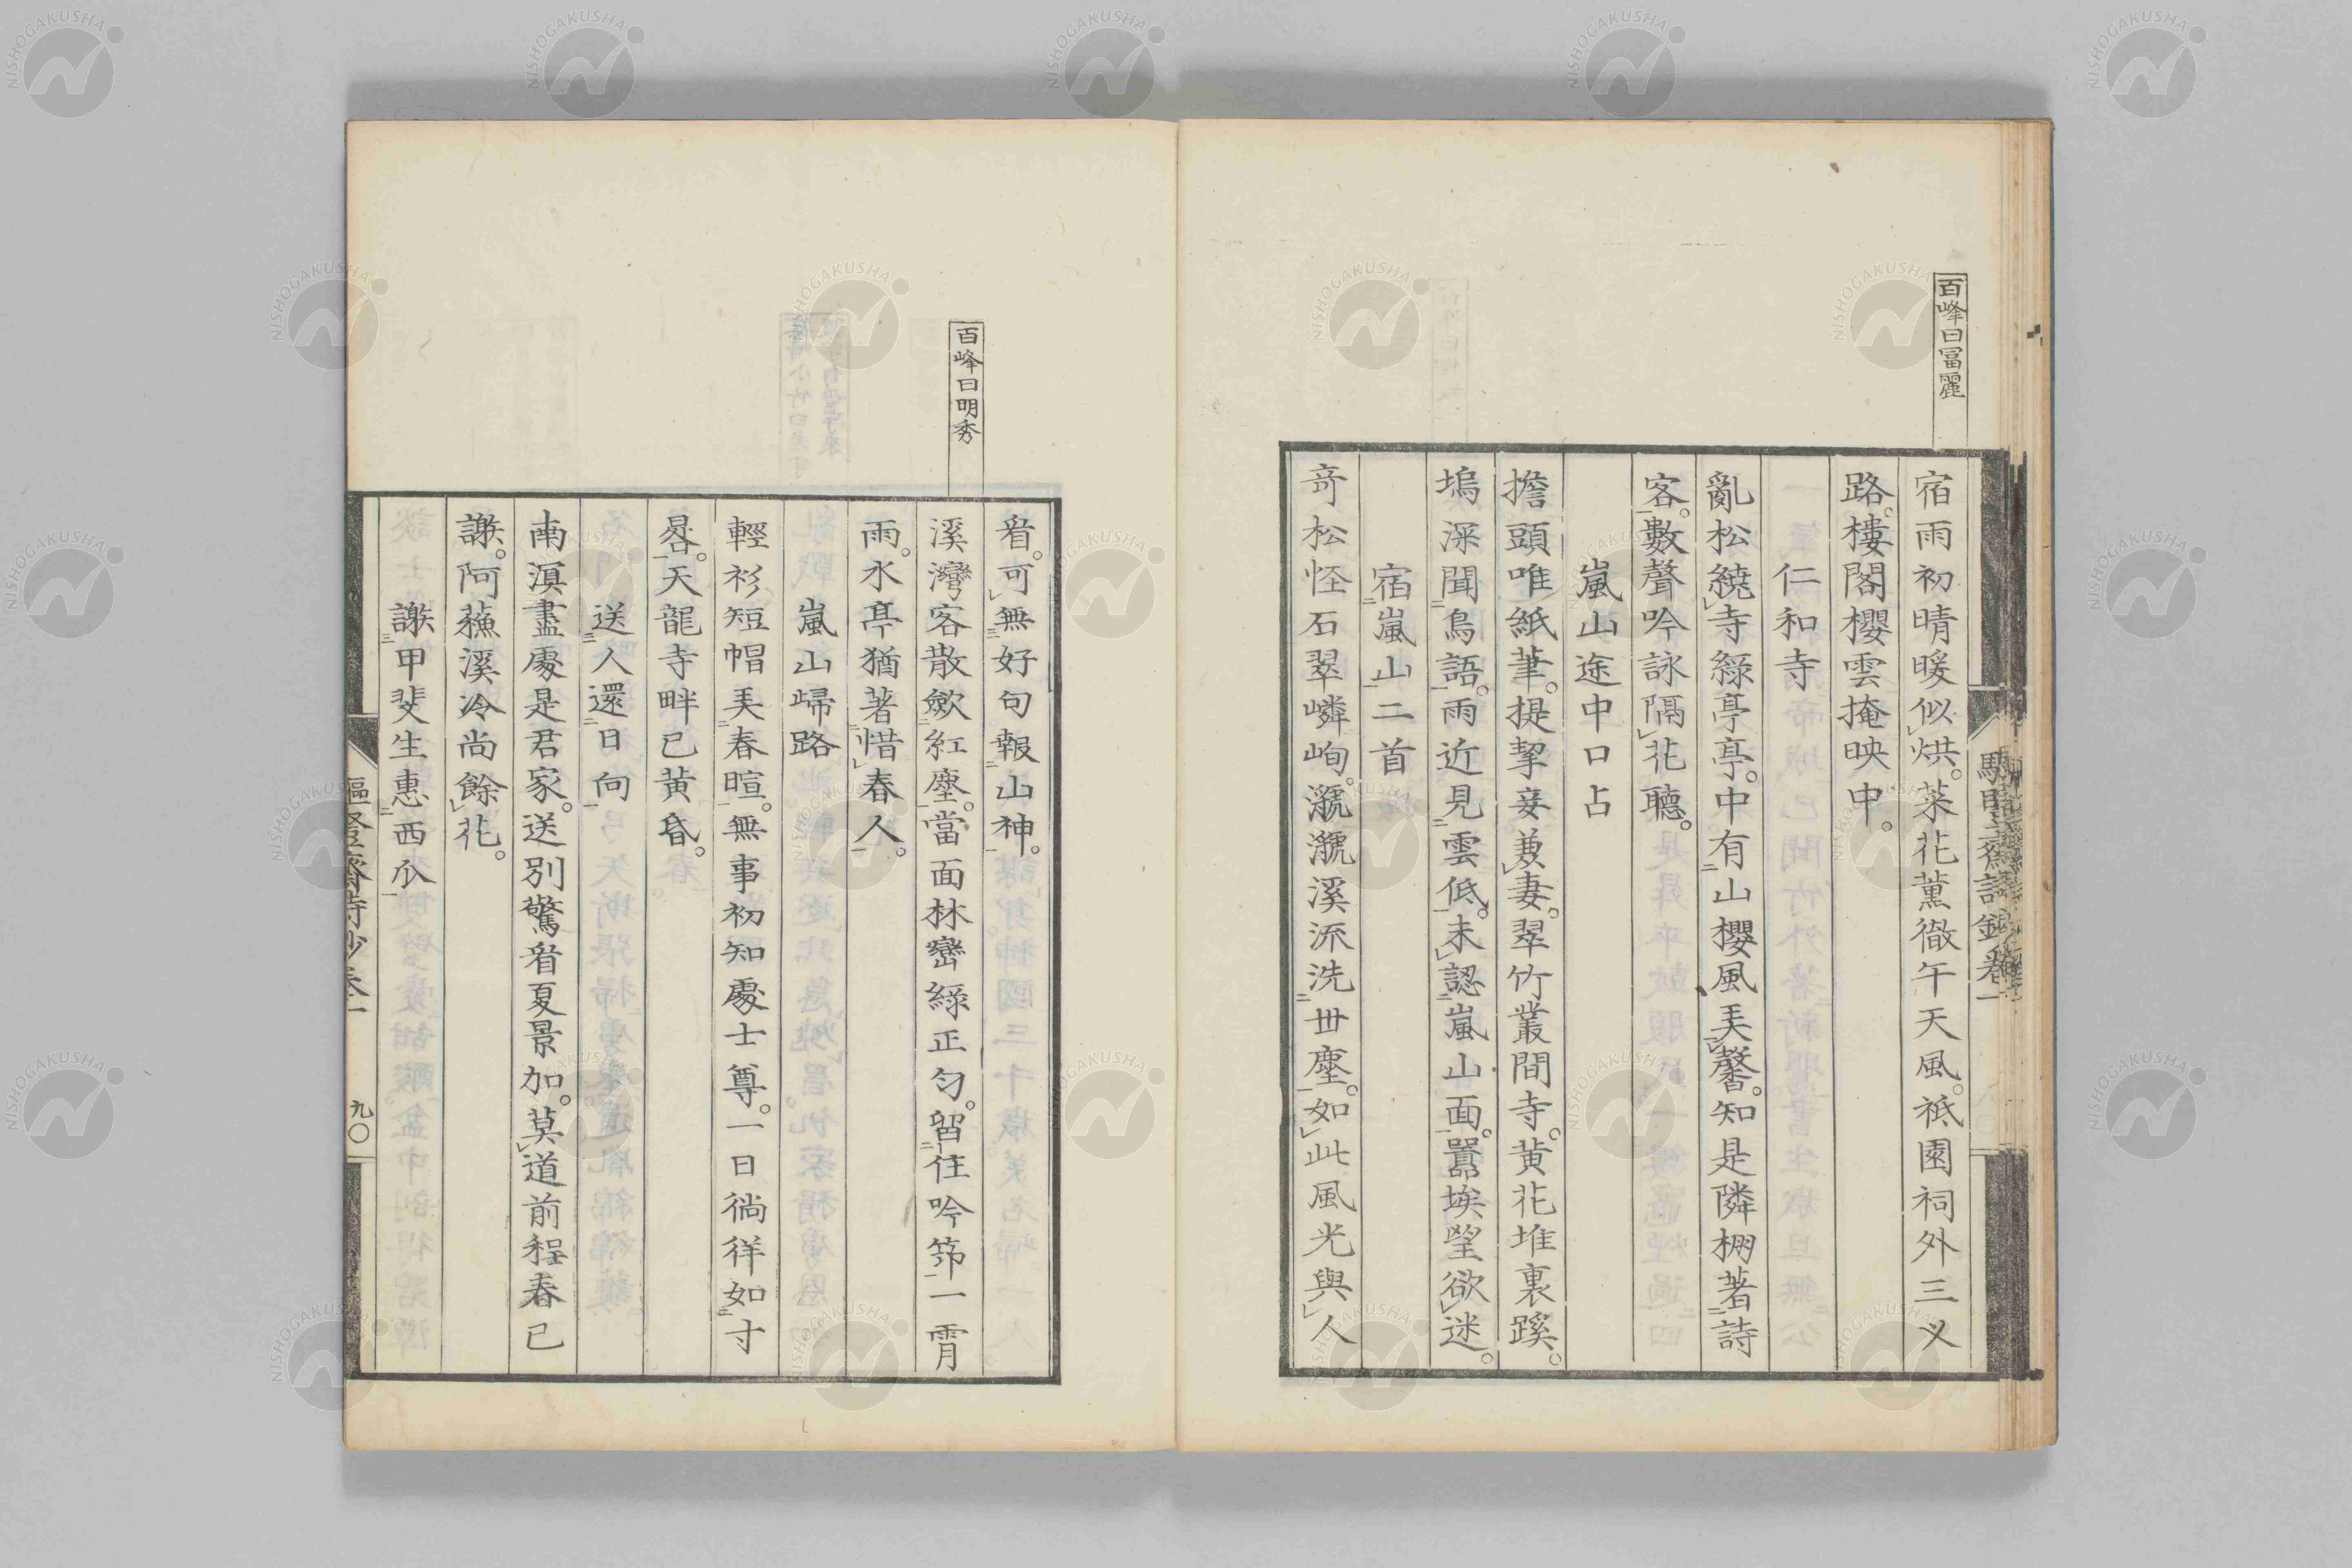 百峰曰冨麗
宿雨初晴暖似烘。菜花薫徹午天風。祇園祠外三乂
路。樓閣櫻雲掩映中。
仁和寺
亂松繞寺綠亭亭。中有山櫻風羙馨。知是隣棚著詩
客。數聲吟詠隔花聽。
嵐山途中口占
擔頭唯紙筆。提挈妾兼妻。翠竹叢間寺。黄花堆裏蹊。
塢深聞鳥語。雨近見雲低。未認嵐山面。囂埃望欲迷。
宿嵐山二首
竒松怪石翠嶙峋。㶁㶁溪流洗世塵。如此風光與人
百峰曰明秀
看。可無好句報山神。
溪灣客散斂紅塵。當面林巒綠正匀。留住吟筇一霄
雨。水亭猶著惜春人。
嵐山歸路
輕衫短帽羙春暄。無事初知處士尊。一日徜徉如寸
晷。天龍寺畔已黄昏。
送人還日向
南溟盡處是君家。送別驚看夏景加。莫道前程春已
謝。阿蘓溪冷尚餘花。
謝甲斐生惠西瓜
九〇
NISHOGAKUSHA